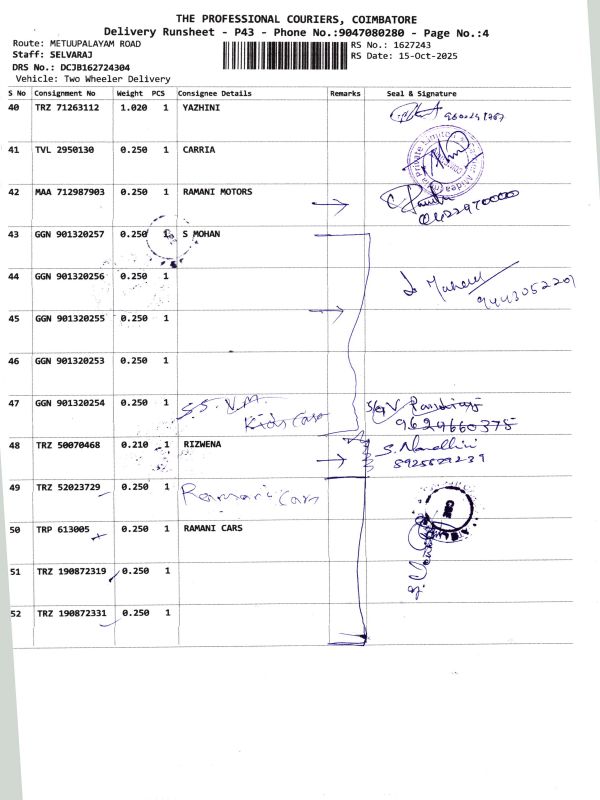 THE PROFESSIONAL COURIERS, COIMBATORE
Delivery Runsheet - P43 - Phone No.:9047080280 - Page No.:4
Route: METUUPALAYAM ROAD RS No.: 1627243
Staff: SELVARAJ RS Date: 15-Oct-2025
DRS No.: DCJB162724304
Vehicle: Two Wheeler Delivery
S No Consignment No Weight PCS Consignee Details Remarks Seal & Signature
40 TRZ 71263112 1.020 1 YAZHINI
41 TVL 2950130 0.250 1 CARRIA
Private Limited
42 MAA 712987903 0.250 1 RAMANI MOTORS
0422970000
43 GGN 901320257 0.250 1 S MOHAN
44 GGN 901320256 0.250 1
9443052201
45 GGN 901320255 0.250 1
46 GGN 901320253 0.250 1
47 GGN 901320254 0.250 1 S.S.V.M. Kids Care
9629660375
48 TRZ 50070468 0.210 1 RIZWENA S. Nandhini
8925629239
49 TRZ 52023729 0.250 1 Ramani Cars
50 TRP 613005 0.250 1 RAMANI CARS
CBE
51 TRZ 190872319 0.250 1
52 TRZ 190872331 0.250 1